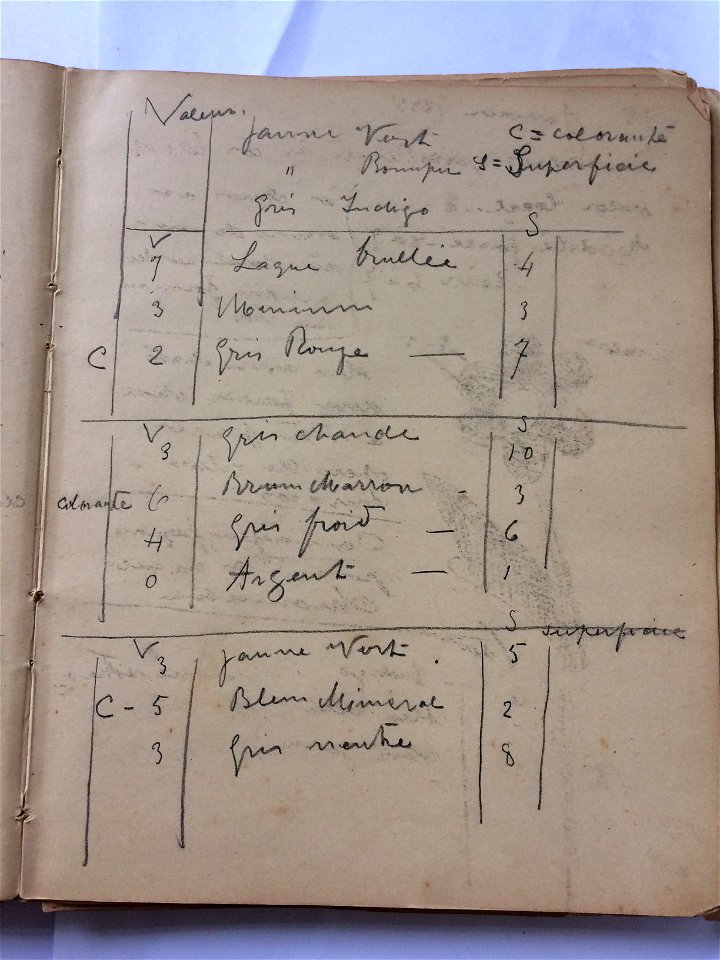 Valeur.
Jaune Vert C = colorante
" Pompei S = Superficie
Gris Indigo
V S
7 Laque brullée 4
3 Minium 3
C 2 Gris Rouge — 7
V Gris chaude S
3 10
colorante 6 Brun Marron - 3
4 Gris froid — 6
0 Argent — 1
S superficie
V 3 Jaune Vert. 5
C - 5 Bleu Mineral 2
3 Gris neutre 8